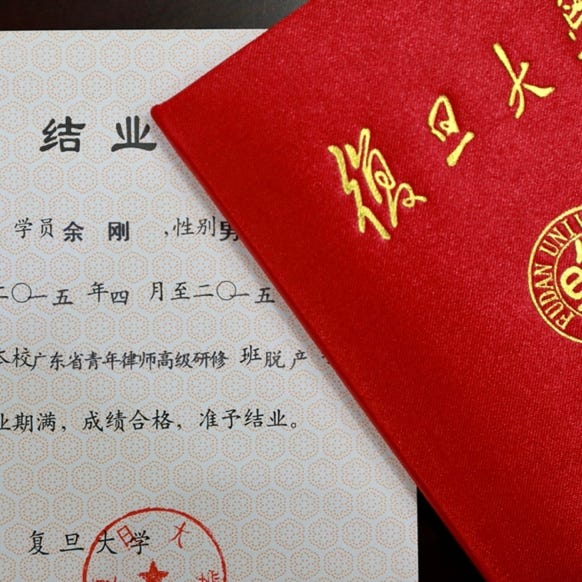 结业
学员余刚,性别男
二〇一五年四月至二〇一五
本校广东省青年律师高级研修班脱产
业期满，成绩合格，准予结业。
复旦大学
旦大
复旦大学
FUDAN UNI